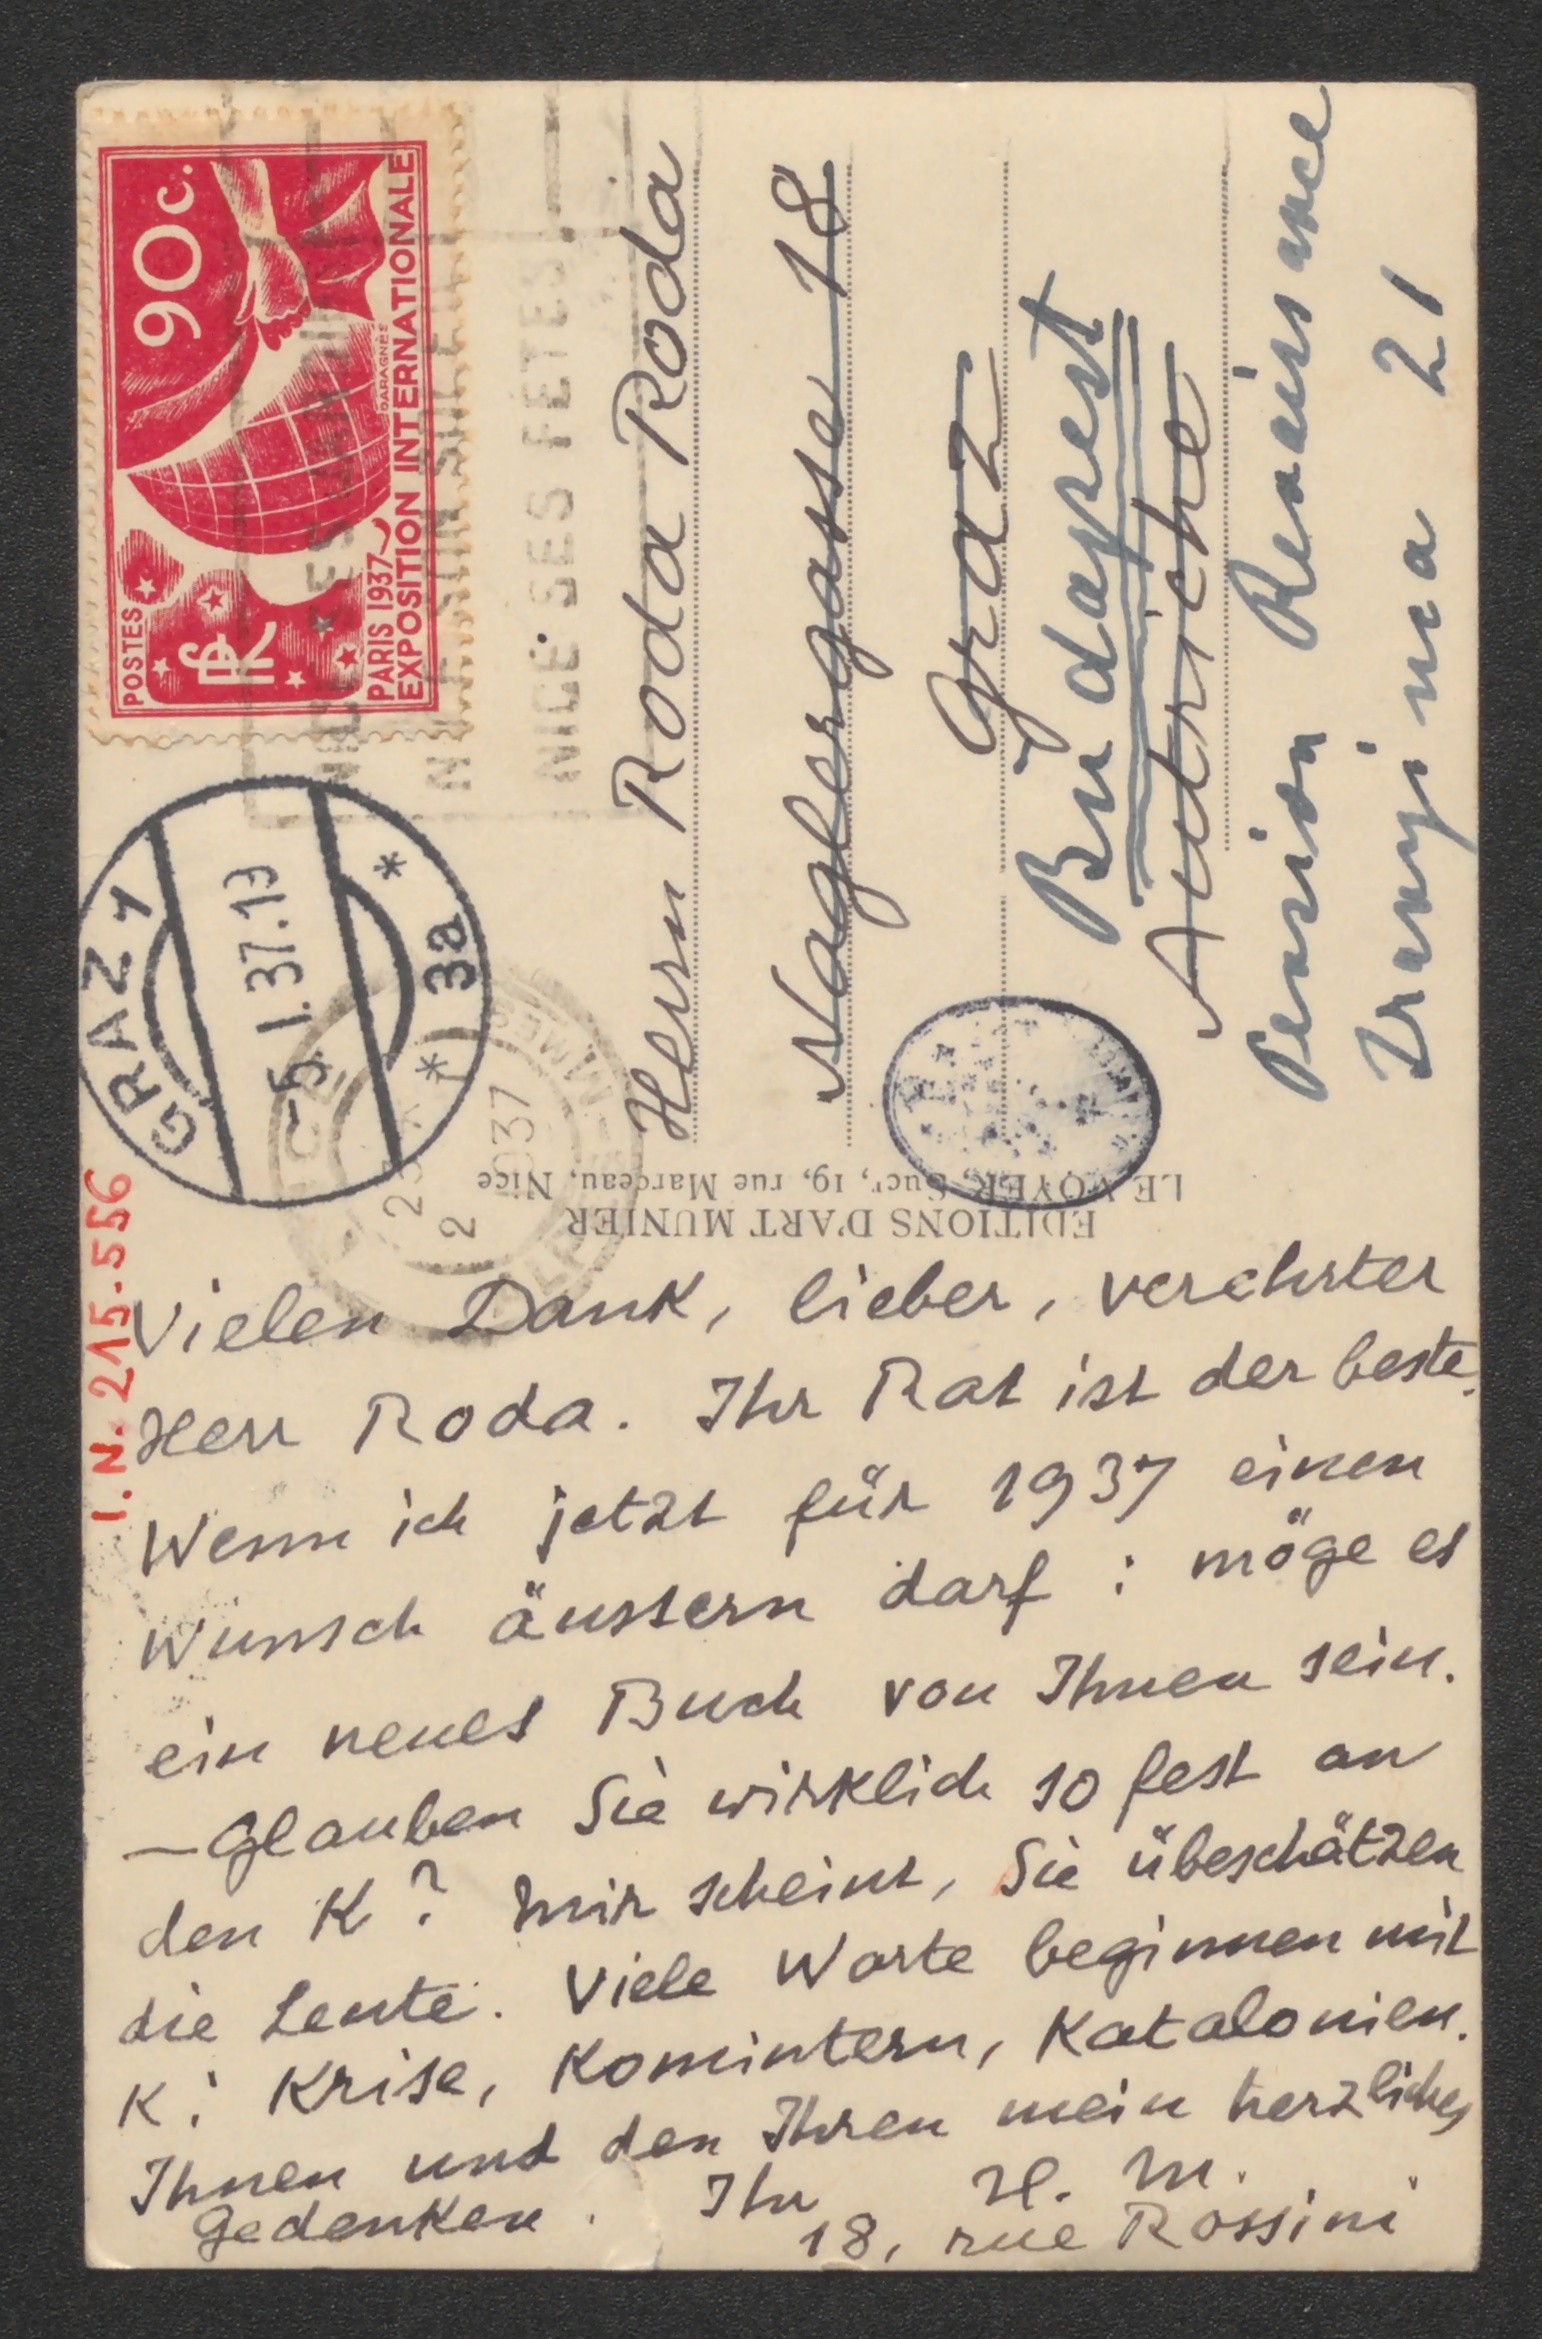 POSTES
90c.
RF
PARIS 1937
DARAGNÈS
EXPOSITION INTERNATIONALE
NICE SES FÊTES
GRAZ 1
-5.I.37.19
* 3a *
2
1937
Herrn Roda Roda Roda
Naglergasse 18
Graz
Budapest
Autriche
Pension Renaissance
Iranyi uca 21
EDITIONS D'ART MUNIER
LE VOYER, Sucr, 19, rue Marceau, Nice
I.N. 215.556
Vielen Dank, lieber, verehrter
Herr Roda. Ihr Rat ist der beste.
Wenn ich jetzt für 1937 einen
Wunsch äussern darf: möge es
ein neues Buch von Ihnen sein.
— Glauben Sie wirklich so fest an
den K? Mir scheint, Sie übeschätzen
die Leute. Viele Worte beginnen mit
K: Krise, Komintern, Katalonien.
Ihnen und den Ihren mein herzliches
Gedenken. Ihr H. M.
18, rue Rossini